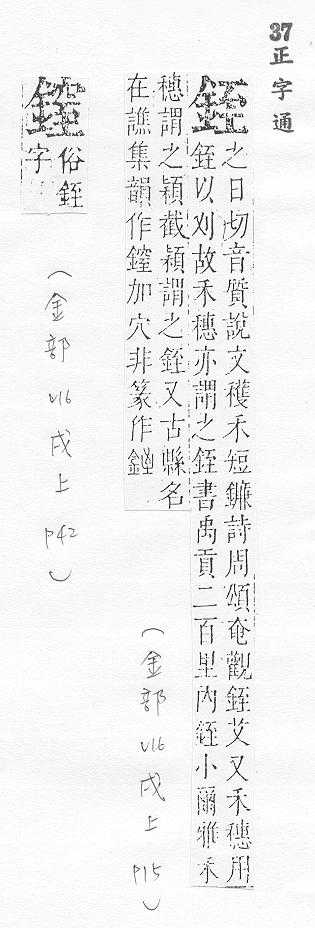 37正字通
銍
之日切音質說文穫禾短鐮詩周頌奄觀銍艾又禾穗用
銍以刈故禾穗亦謂之銍書禹貢二百里內銍小爾雅禾
穗謂之穎截穎謂之銍又古縣名
在譙集韻作鑧加穴非篆作
(金部 V16 戌上 p15)
俗銍
字
(金部 V16 戌上 p42)